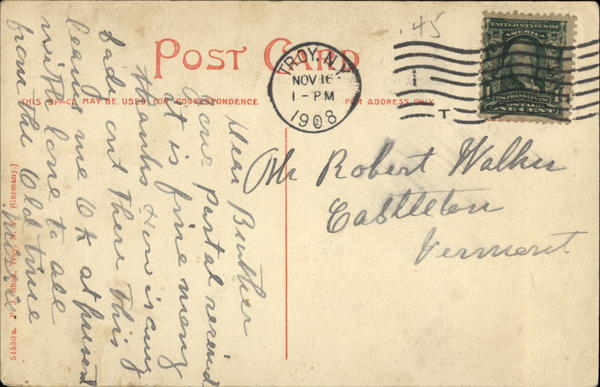 POST CARD
THIS SPACE MAY BE USED FOR CORRESPONDENCE
FOR ADDRESS ONLY
TROY, N.Y.
NOV 16
1-PM
1908
1
T
.45
UNITED STATES OF
AMERICA
FRANKLIN
Mr Robert Walker
Castleton
Vermont
Dear Brother
Your postal received
it is fine many
thanks How is any
body out there This
leaves me O K at present
with love to all
from the Old time
54550a.
(Germany.)